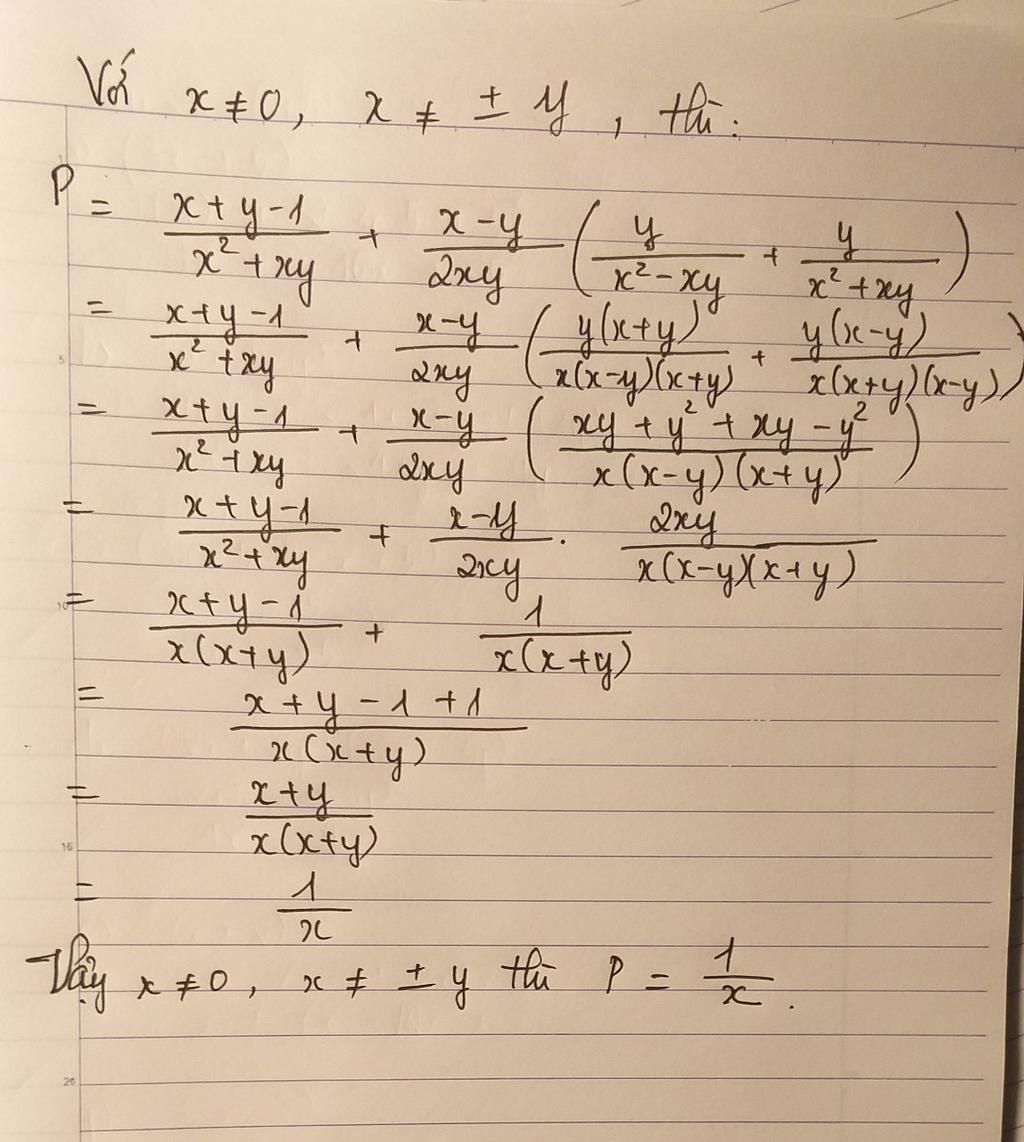 Với x ≠ 0, x ≠ ± y, thì:
P = \frac{x+y-1}{x^2+xy} + \frac{x-y}{2xy} \left( \frac{y}{x^2-xy} + \frac{y}{x^2+xy} \right)
= \frac{x+y-1}{x^2+xy} + \frac{x-y}{2xy} \left( \frac{y(x+y)}{x(x-y)(x+y)} + \frac{y(x-y)}{x(x+y)(x-y)} \right)
= \frac{x+y-1}{x^2+xy} + \frac{x-y}{2xy} \left( \frac{xy+y^2+xy-y^2}{x(x-y)(x+y)} \right)
= \frac{x+y-1}{x^2+xy} + \frac{x-y}{2xy} . \frac{2xy}{x(x-y)(x+y)}
= \frac{x+y-1}{x(x+y)} + \frac{1}{x(x+y)}
= \frac{x+y-1+1}{x(x+y)}
= \frac{x+y}{x(x+y)}
= \frac{1}{x}
Vậy x ≠ 0, x ≠ ± y thì P = \frac{1}{x}.
5
10
15
20